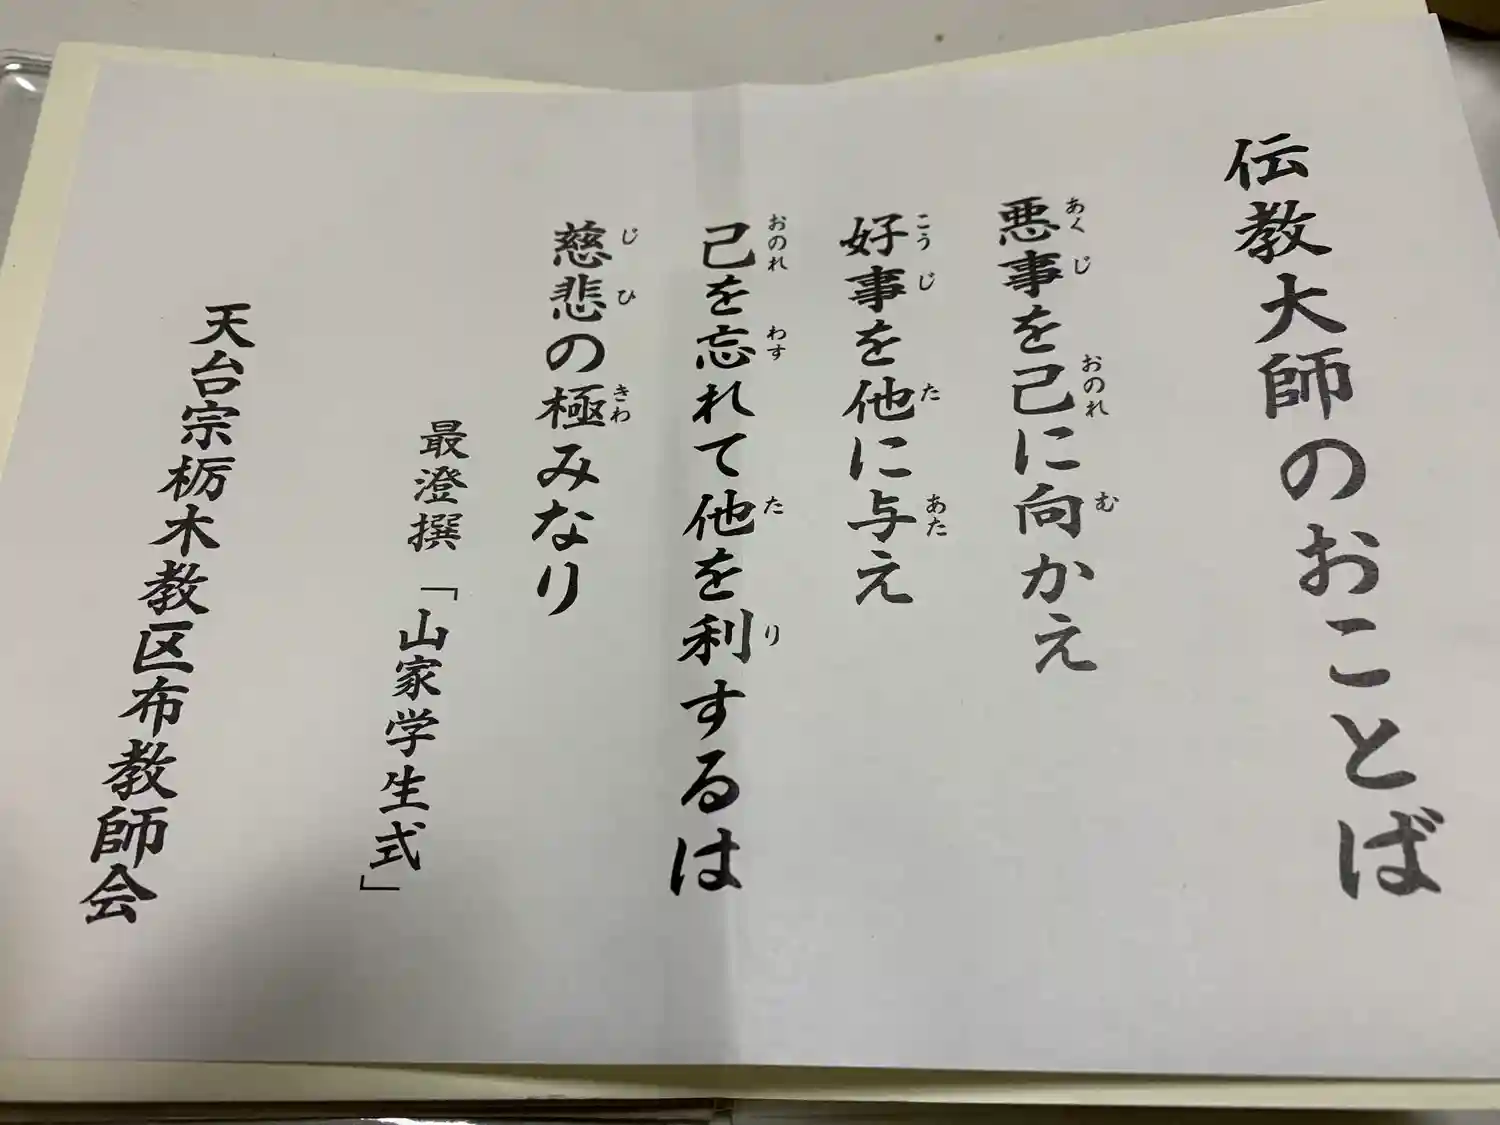 伝教大師のおことば
悪事を己に向かえ
あくじ おのれ む
好事を他に与え
こうじ た あた
己を忘れて他を利するは
おのれ わす た り
慈悲の極みなり
じひ きわ
最澄撰「山家学生式」
天台宗栃木教区布教師会